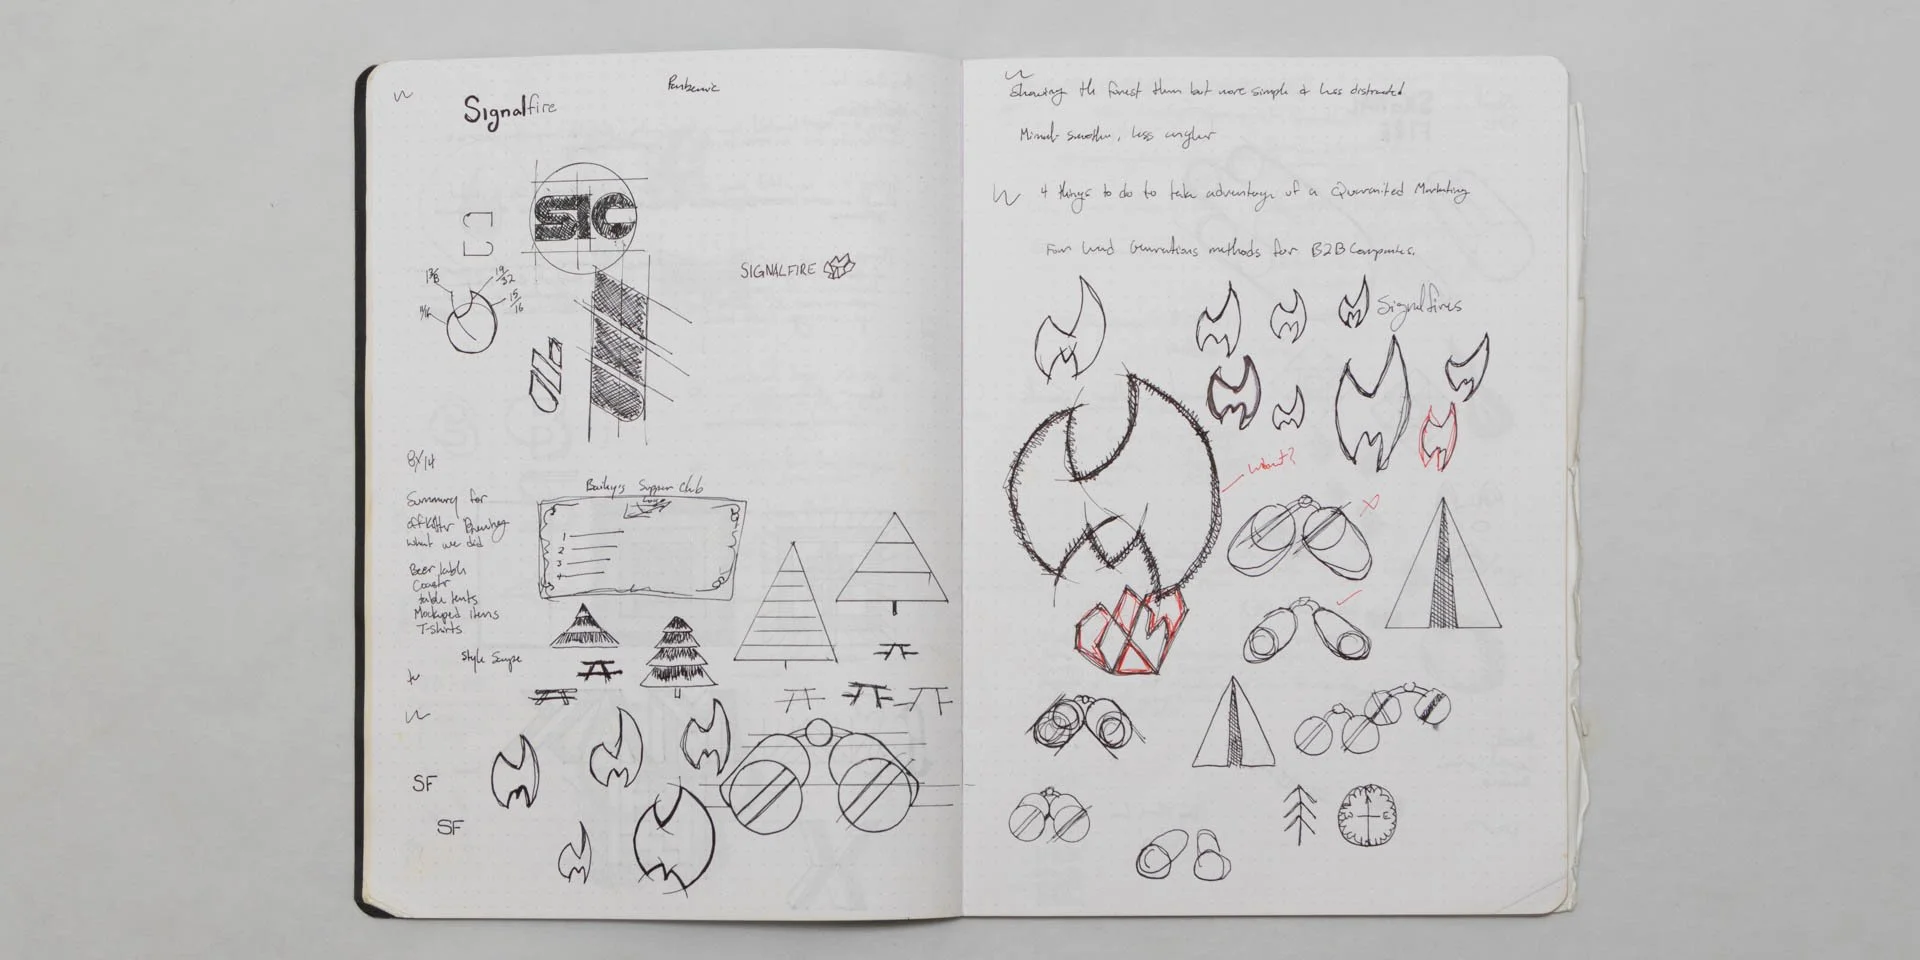 Signalfire
SIC
SIGNALFIRE
1 3/8
19/32
15/16
8x14
Summary for
what we did
Beer labels
Coaster
table tents
Mockuped items
T-shirts
Style Scape
Bailey's Supper Club
1
2
3
4
SF
SF
Showing the forest them but more simple & less distracted
Minimal- smoother, less angular
4 things to do to take advantage of a Quaranited Marketing
Four Lead Generations methods for B2B Companies.
Signalfires
what?